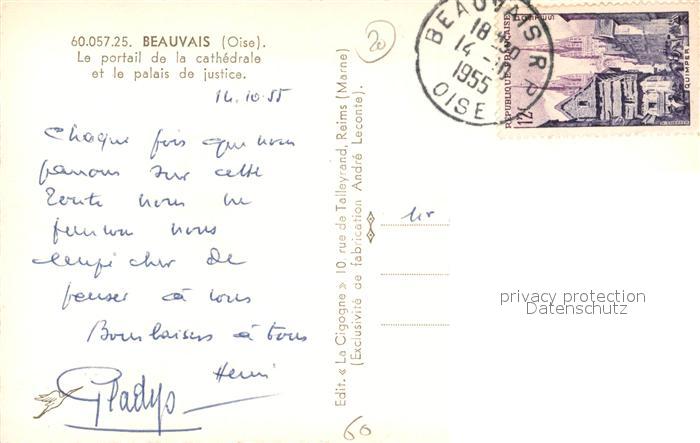 60.057.25. BEAUVAIS (Oise).
Le portail de la cathédrale
et le palais de justice.
14.10.55
Chaque fois que nous
passons sur cette
route nous ne
pouvons nous
empêcher de
penser à vous
Bons baisers à tous
Henri
Gladys
20
60
Edit. « La Cigogne » 10, rue de Talleyrand, Reims (Marne)
(Exclusivité de fabrication André Leconte).
BEAUVAIS R.P.
18
14 -10
1955
OISE
REPUBLIQUE FRANÇAISE
POSTES
12F
QUIMPER
privacy protection
Datenschutz